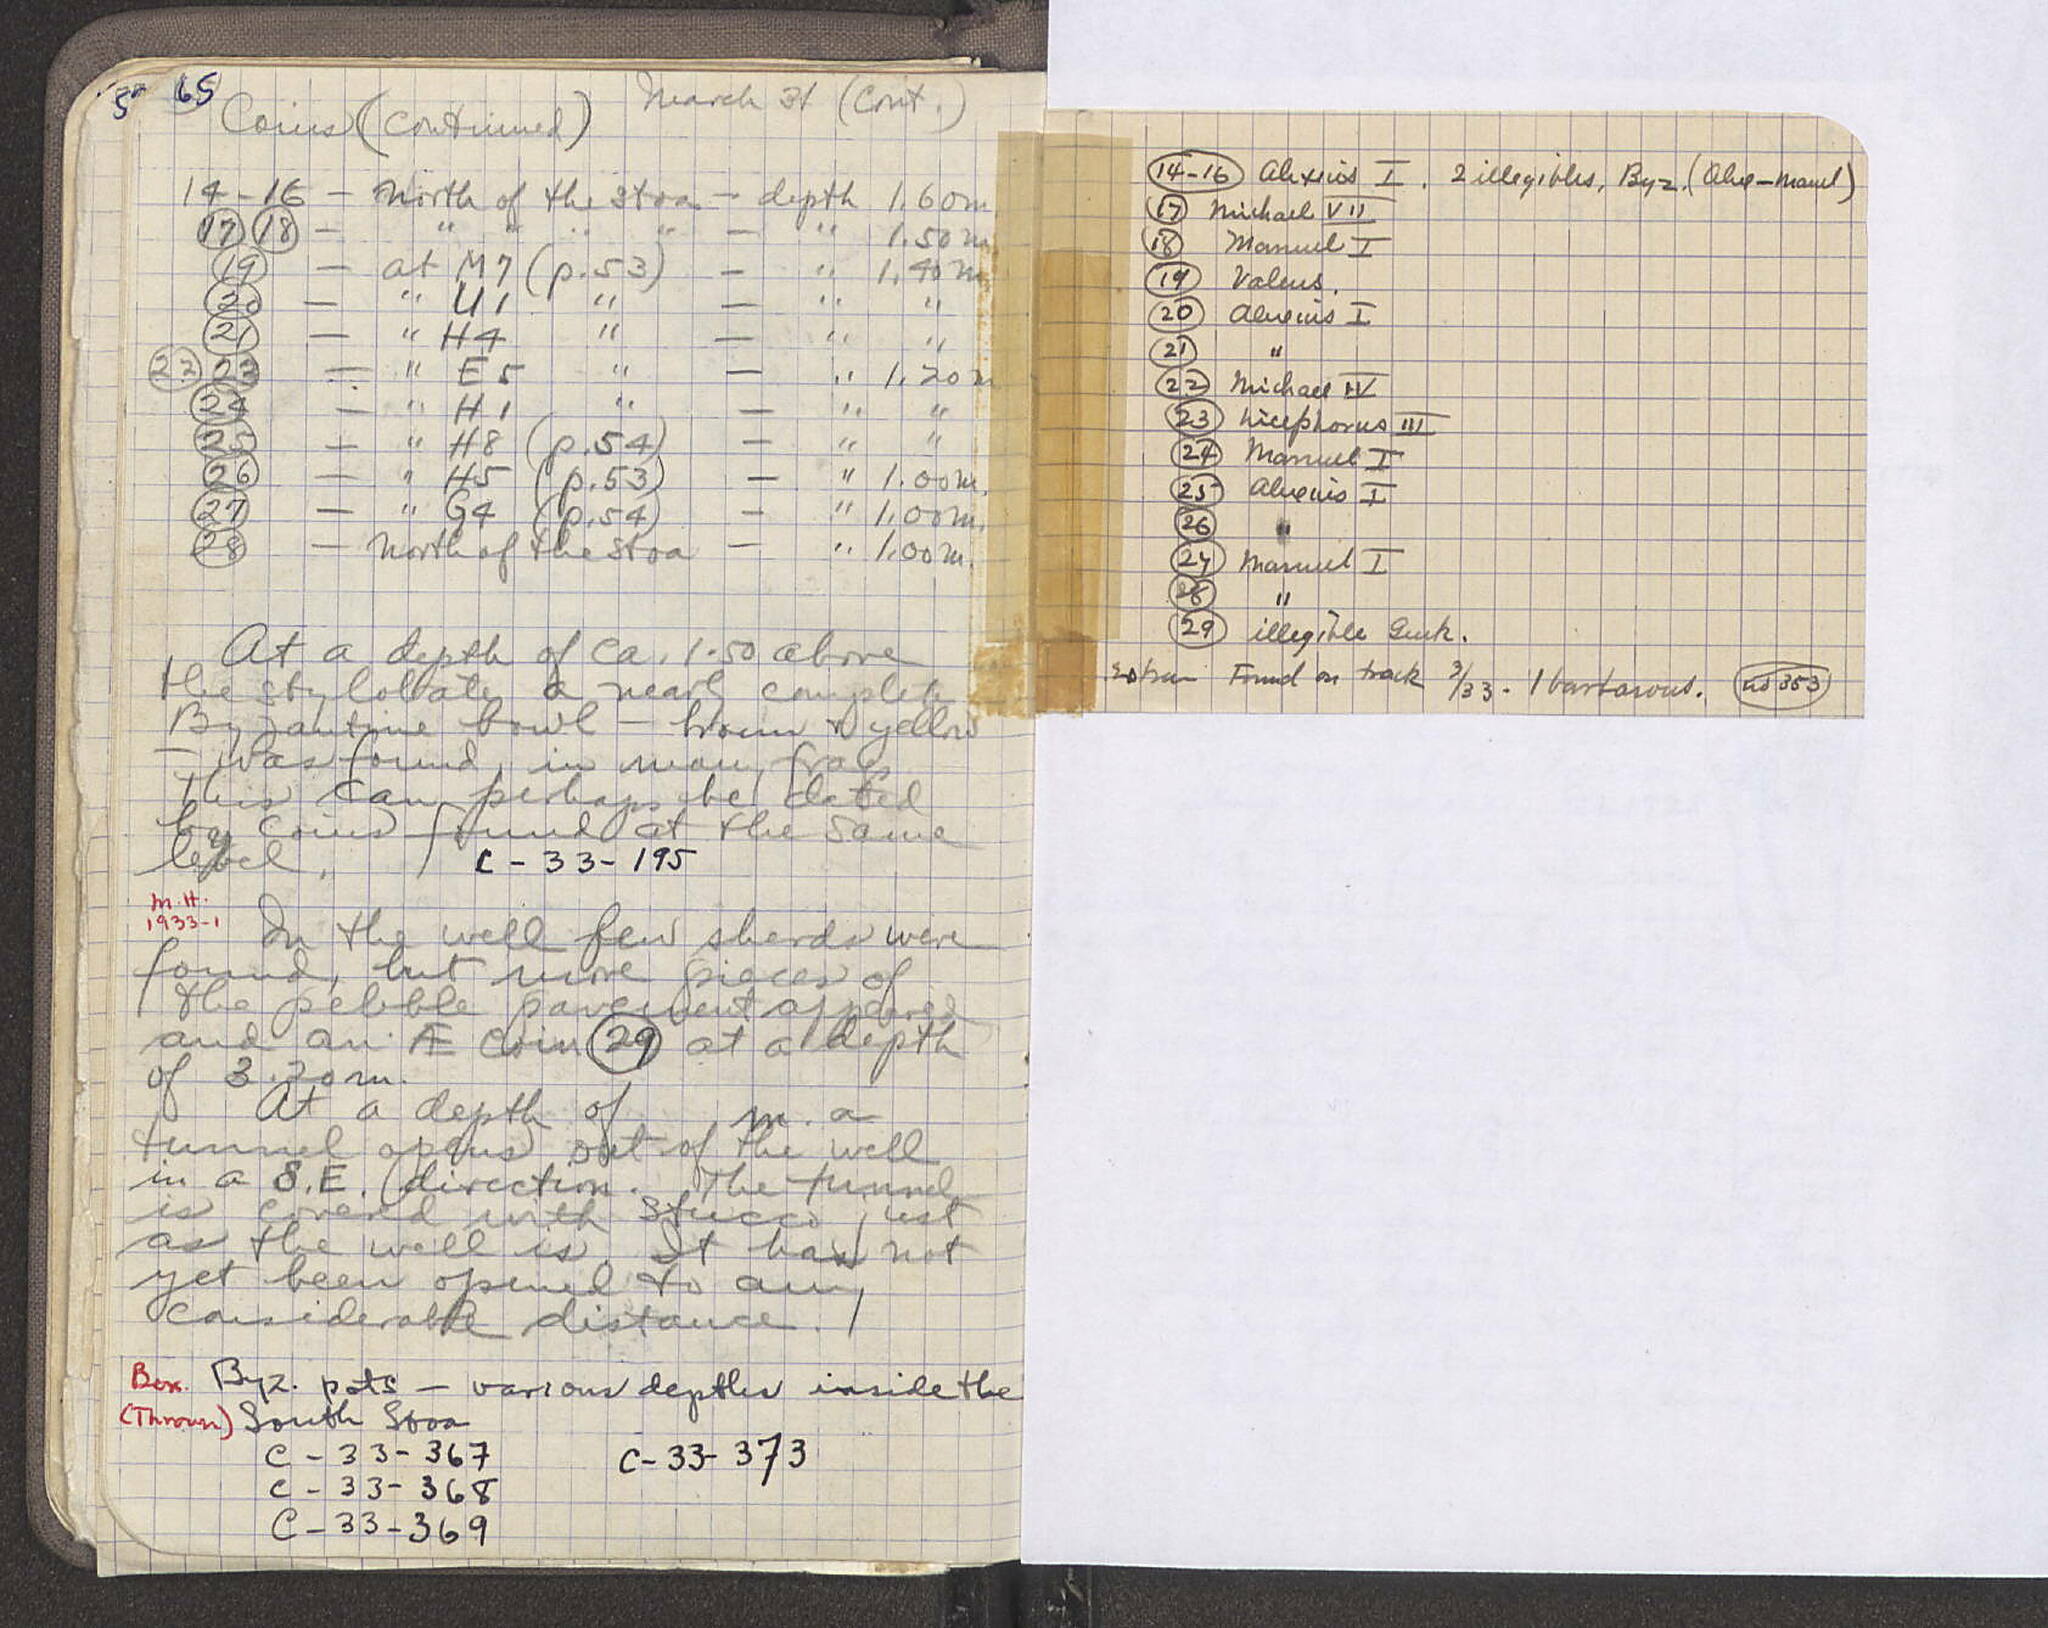 65
March 31 (Cont.)
Coins (Continued)
14-16 — North of the Stoa — depth 1.60m
17 18 — " " " " — " 1.50m
19 — at M7 (p.53) — " 1.40m
20 — " U1 " — " "
21 — " H4 " — " "
22 23 — " E5 " — " 1.20m
24 — " H1 " — " "
25 — " H8 (p.54) — " "
26 — " H5 (p.53) — " 1.00m.
27 — " G4 (p.54) — " 1.00m.
28 — North of the Stoa — " 1.00m.
At a depth of ca. 1.50 above
the stylobate a nearly complete
Byzantine bowl — brown & yellow
— was found, in many frags
This can perhaps be dated
by coins found at the same
level.
C-33-195
M.H.
1933-1
In the well few sherds were
found, but more pieces of
the pebble pavement appeared
and an Æ coin 29 at a depth
of 3.20m.
At a depth of m. a
tunnel opens out of the well
in a S.E. direction. The tunnel
is covered with stucco just
as the well is. It has not
yet been opened to any
considerable distance.
Box. Byz. pots — various depths inside the
(Thrown) South Stoa
C-33-367 C-33-373
C-33-368
C-33-369
14-16 Alexios I. 2 illegibles, Byz. (Alex-Manuel)
17 Michael VII
18 Manuel I
19 Valens.
20 Alexius I
21 "
22 Michael IV
23 Nicephorus III
24 Manuel I
25 Alexius I
26 "
27 Manuel I
28 "
29 illegible Greek.
Found on track 3/33 - 1 barbarous. no 353